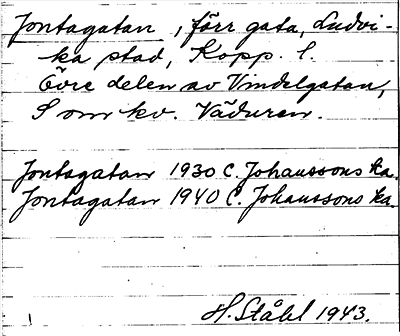 Jontagatan, förr gata, Ludvi-
ka stad, Kopp. l.
Övre delen av Vindelgatan,
S om kv. Väduren.
Jontagatan 1930 C. Johanssons ka.
Jontagatan 1940 C. Johanssons ka.
H. Ståhl 1943.
1